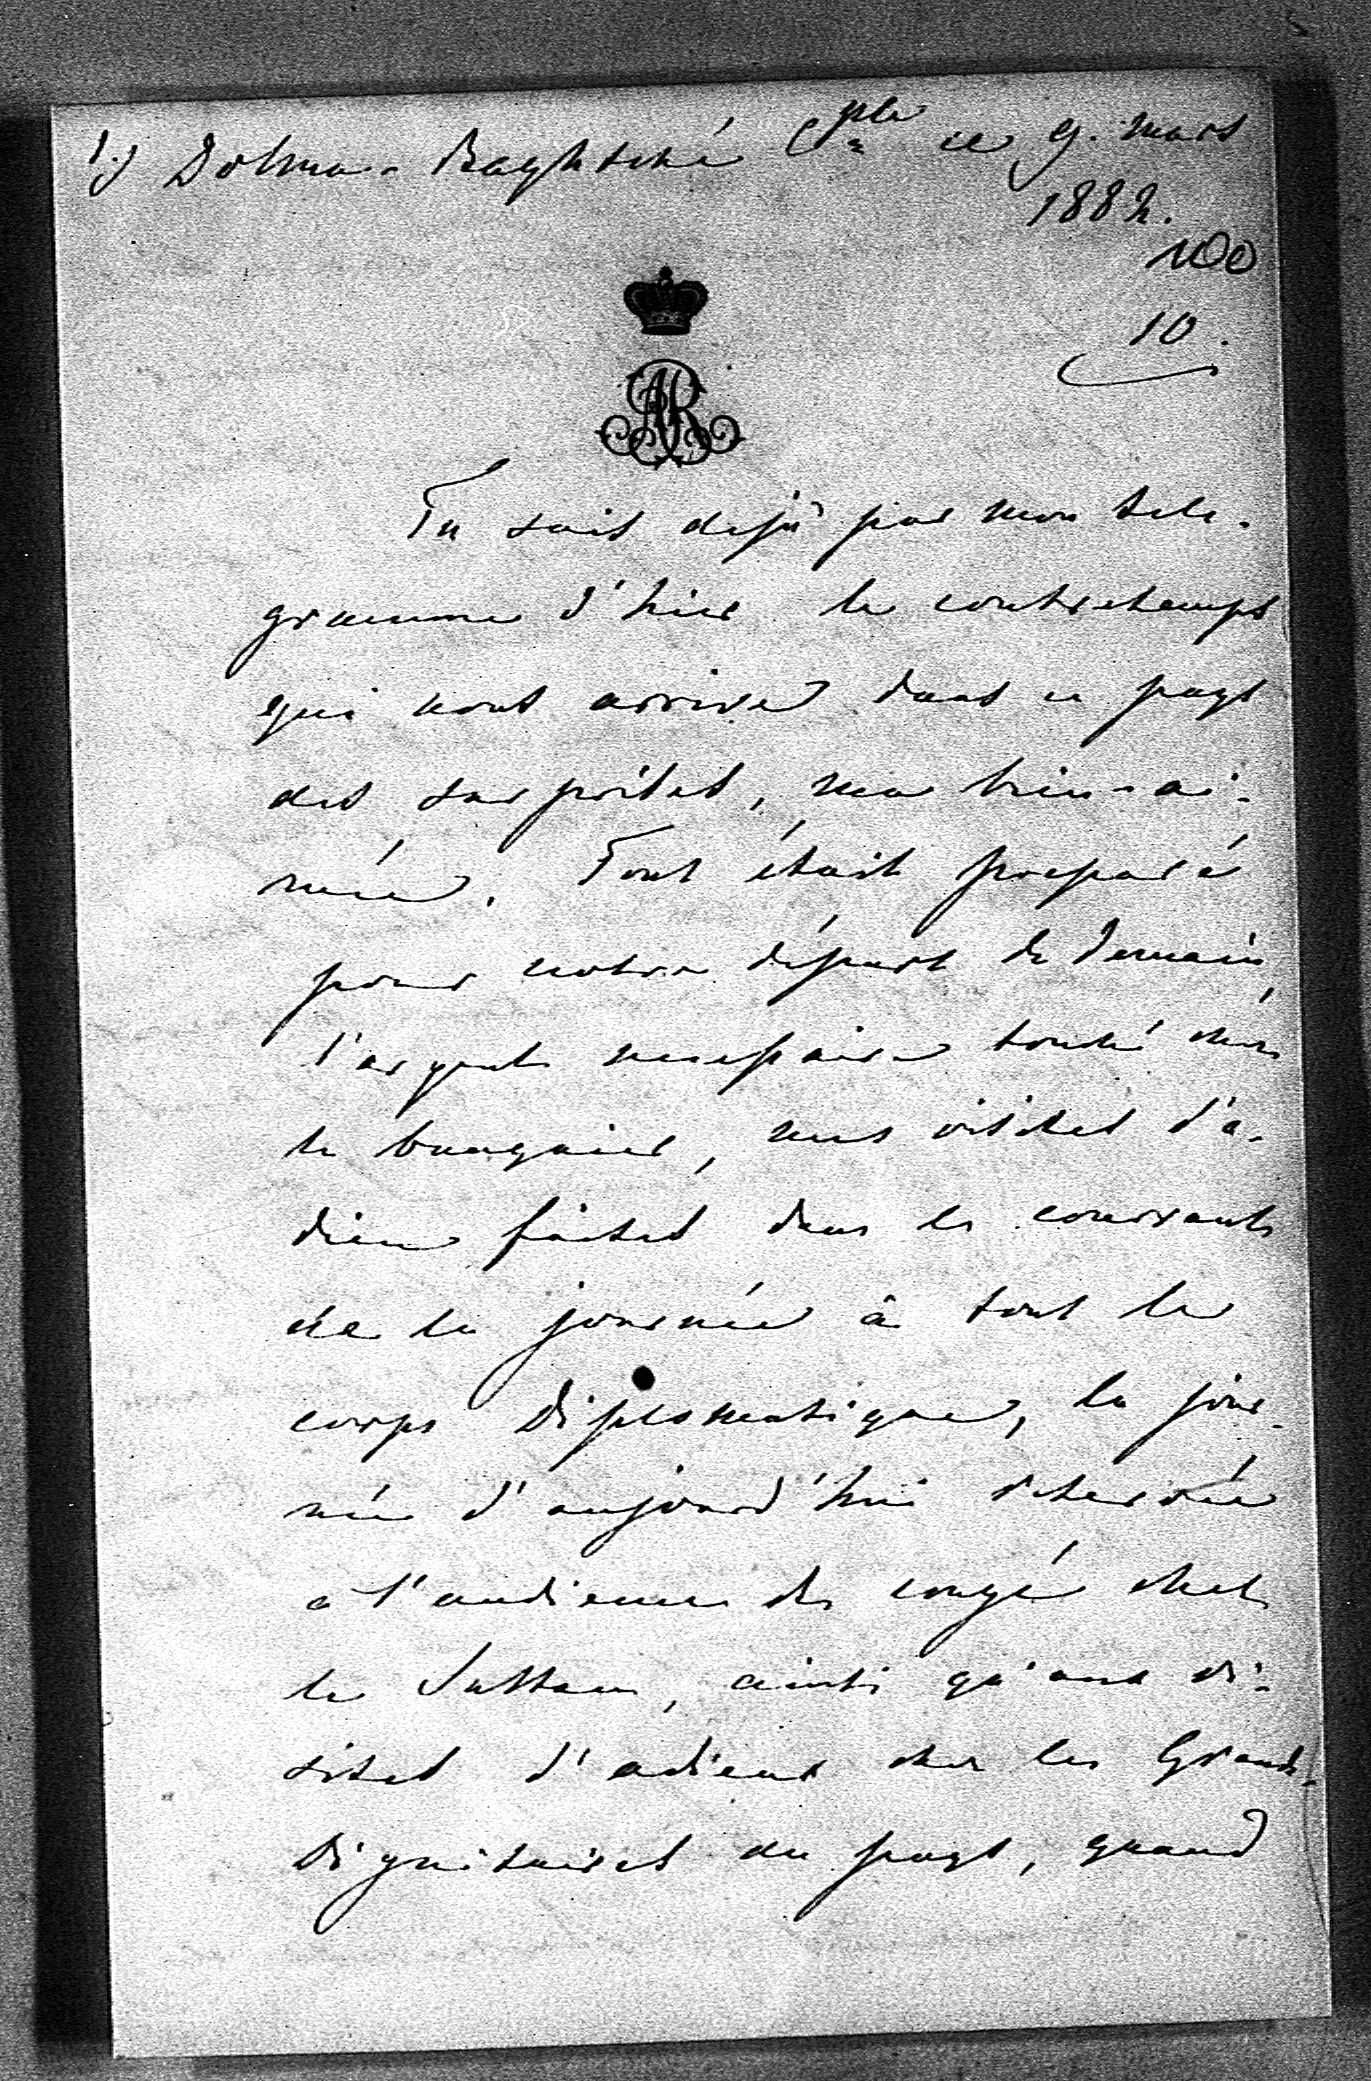 1.) Dolma-Baghtché Cple ce 9. mars
1882.
100
10.
AR
Tu sais dejà par mon tele-
gramme d'hier le contretemps
qui nous arrive dans ce pays
des surprises, ma bien-ai-
mée. Tout était preparé
pour notre départ de demain,
l'argent necessaire touché chez
le banquier, nos visites d'a-
dieu faites dans le courrant
de la journée à tout le
corps diplomatique, la jour-
née d'aujourd'hui réservée
à l'audience de congé chez
le Sultan, ainsi qu'aux vi-
sites d'adieux chez les Grands-
dignitaires du pays, quand